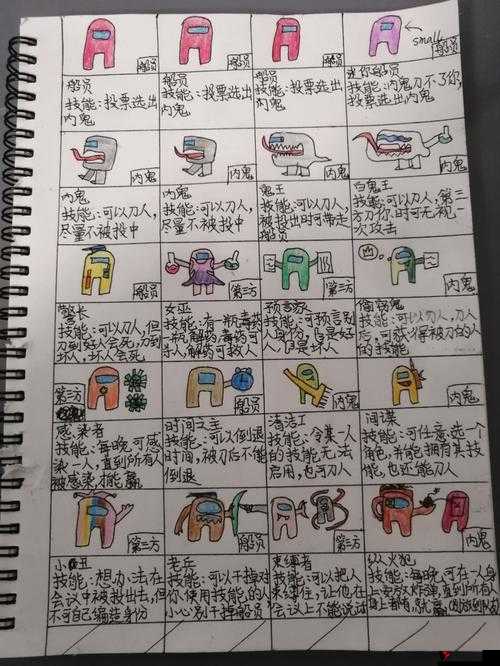 船员
船员
船员
small
船员
船员
技能:投票选出
内鬼
船员
技能:投票选出
内鬼
船员
技能:投票选出
内鬼
迷你船员
技能:内鬼刀不了你,
投票选出内鬼
内鬼
内鬼
内鬼
内鬼
内鬼
技能:可以刀人,
尽量不被投中
内鬼
技能:可以刀人,
尽量不被投中
鬼王
技能:可以刀人,
被投出时可带走
船员
白鬼王
技能:可以刀人,第三
方刀你时可无视一
次攻击
船员
第三方
第三方
内鬼
警长
技能:可以刀人,但
刀到好人会死,刀到
坏人,坏人会死
女巫
技能:有一瓶毒药
一瓶解药,毒药可
杀人,解药可救人
预言家
技能:可预言别
人身份,是好
人,是坏人
技能:可以刀人,刀人
后,可获得被刀的人
的技能
第三方
船员
内鬼
内鬼
感染者
技能:每晚可感
染一人,直到所有人
被感染才能赢
时间之主
技能:可以倒退
时间,被刀后不能
倒退
清洁工
技能:令某一人
的技能无法
启用,也可刀人
间谍
技能:可任意选一个
角色,并能拥有其技
能,也还能刀人
第三方
船员
第三方
内鬼
小丑
技能:想办法在
会议中被投出去,但
不可自己编造身份
老兵
技能:可以干掉对
你使用技能的人
小心别干掉船员
束缚者
技能:可以把人
束缚住,让他在
会议上不能说话
纵火犯
技能:每晚可在一人身